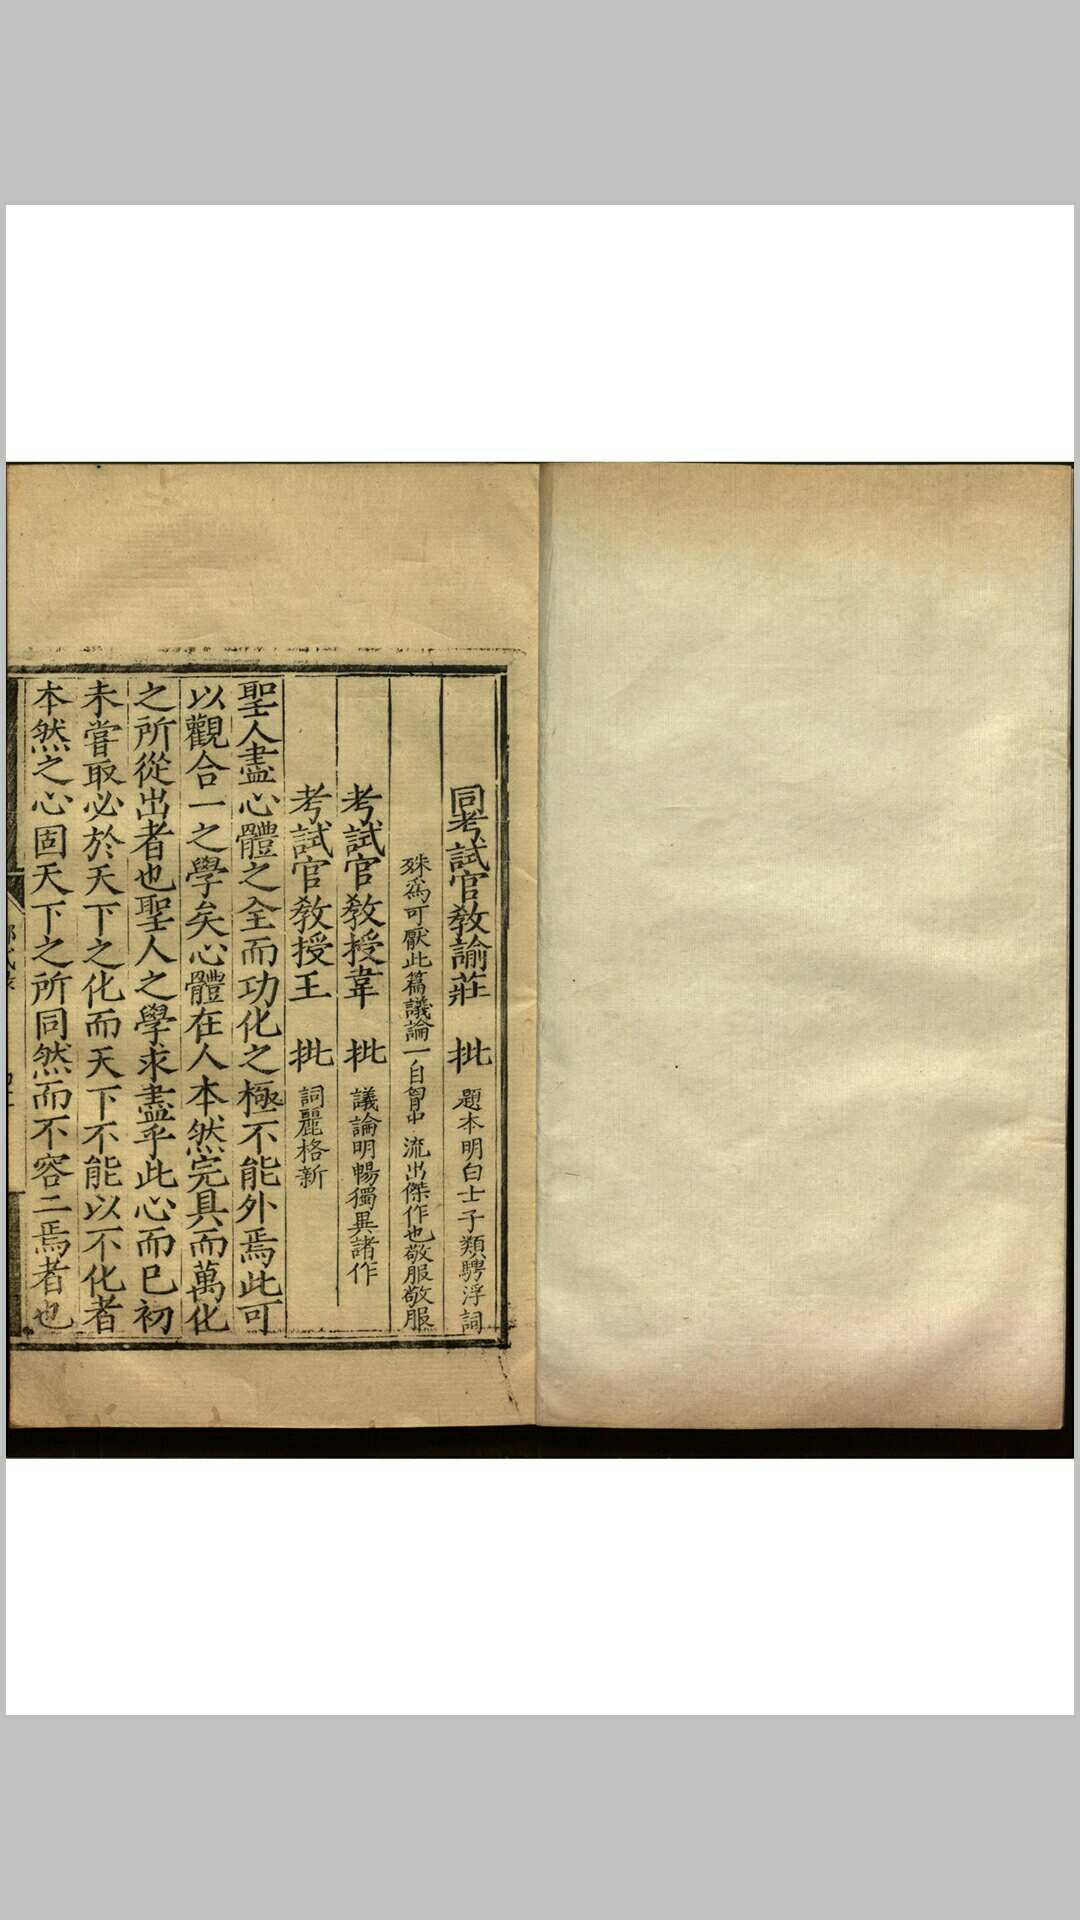 同考試官敎諭莊　批　題本明白士子類騁浮詞
殊爲可厭此篇議論一自胷中流出傑作也敬服敬服
考試官敎授韋　批　議論明暢獨異諸作
考試官敎授王　批　詞麗格新
聖人盡心體之全而功化之極不能外焉此可
以觀合一之學矣心體在人本然完具而萬化
之所從出者也聖人之學求盡乎此心而已初
未嘗取必於天下之化而天下不能以不化者
本然之心固天下之所同然而不容二焉者也